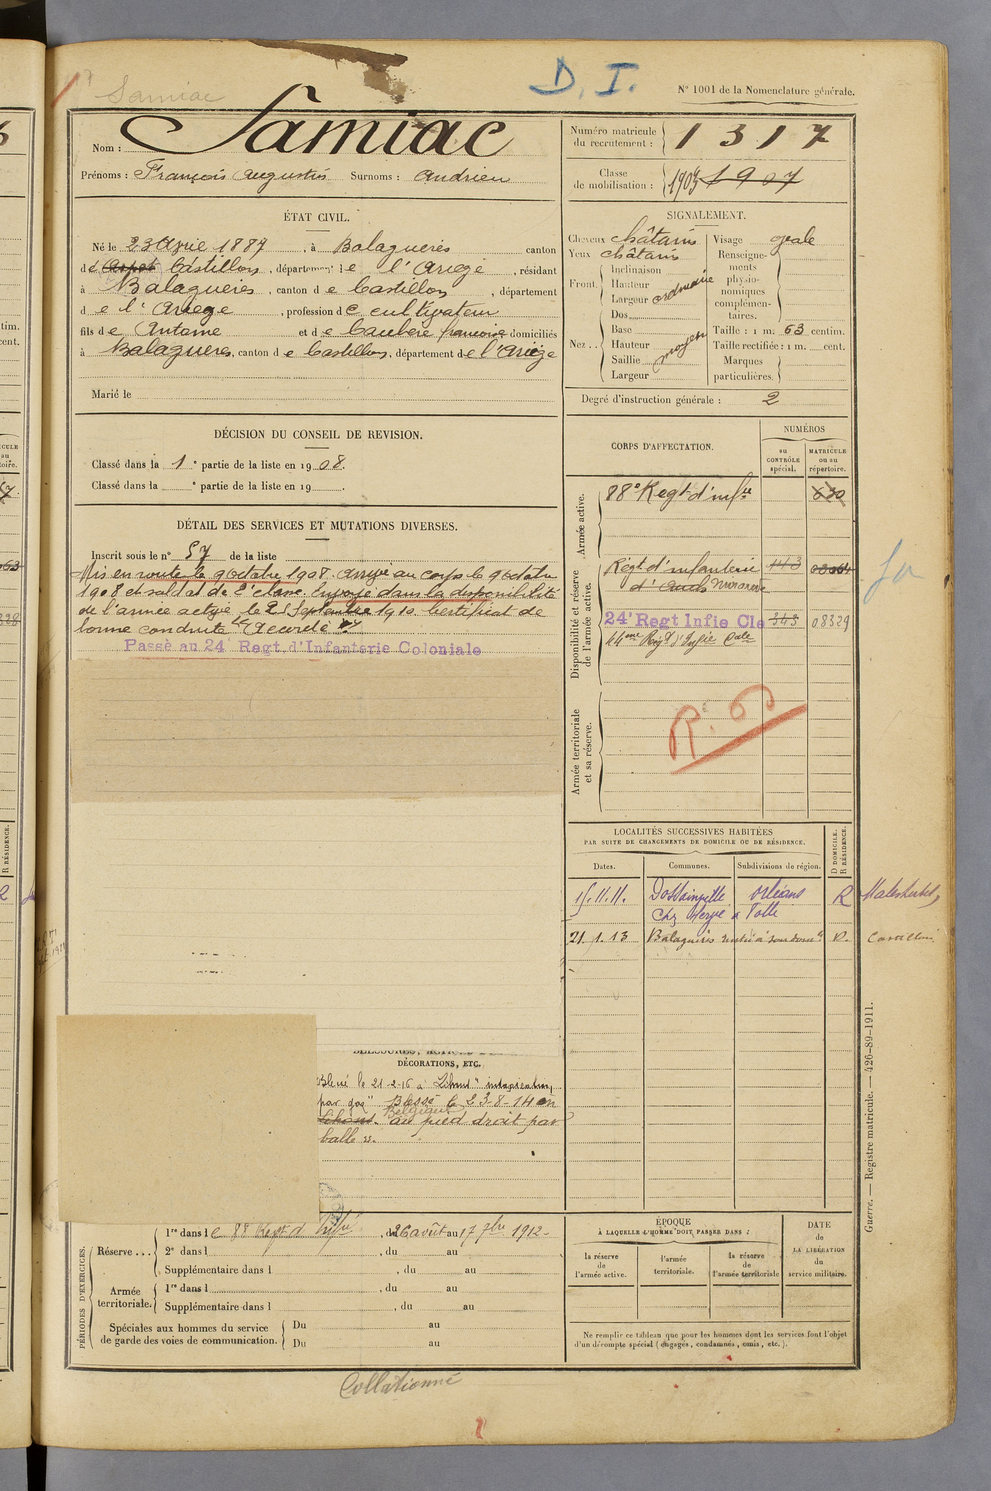 Samiac
D. I.
N° 1001 de la Nomenclature générale.
Nom : Samiac
Prénoms : François Augustin Surnoms : Andrieu
Numéro matricule du recrutement : 1317
Classe de mobilisation : 1907
ÉTAT CIVIL.
Né le 23 Avril 1887, à Balaguères canton
de Aspet Castillon, département de l'Ariège, résidant
à Balaguères, canton de Castillon, département
de l'Ariège, profession de cultivateur
fils de Antoine et de Caubère françoise domiciliés
à Balaguères, canton de Castillon, département de l'Ariège
Marié le
SIGNALEMENT.
Cheveux châtains
Yeux châtains
Front. Inclinaison
Hauteur
Largeur ordinaire
Nez.. Dos
Base
Hauteur moyen
Saillie
Largeur
Visage ovale
Renseignements physionomiques complémentaires.
Taille : 1 m. 63 centim.
Taille rectifiée : 1 m. cent.
Marques particulières.
Degré d'instruction générale : 2
DÉCISION DU CONSEIL DE REVISION.
Classé dans la 1e partie de la liste en 1908.
Classé dans la e partie de la liste en 19 .
DÉTAIL DES SERVICES ET MUTATIONS DIVERSES.
Inscrit sous le n° 57 de la liste
Mis en route le 9 octobre 1908. Arrivé au corps le 9 octobre
1908 et soldat de 2e classe. Envoyé dans la disponibilité
de l'armée active le 25 Septembre 1910. Certificat de
bonne conduite Accordé
Passé au 24 Regt d'Infanterie Coloniale
CORPS D'AFFECTATION.
NUMÉROS
au CONTRÔLE spécial.
MATRICULE ou au répertoire.
Armée active.
88e Regt d'Infie
Disponibilité et réserve de l'armée active.
Régt d'infanterie
d'Auch Mirande
24e Regt Infie Cle 343 08329
44me Régt d'Infie Cale
Armée territoriale et sa réserve.
R.
LOCALITÉS SUCCESSIVES HABITÉES
PAR SUITE DE CHANGEMENTS DE DOMICILE OU DE RÉSIDENCE.
Dates.
Communes.
Subdivisions de région.
D DOMICILE.
R RÉSIDENCE.
15.11.11. Orléans R Malesherbes
21.1.13 Balaguères D.
DÉCORATIONS, ETC.
Blessé le 21-2-16 à Lihons "intoxication
par gaz" Blessé le 23-8-14 en
Lihons. Belgique au pied droit par
balle
PÉRIODES D'EXERCICES.
Réserve... 1re dans le 88 Regt d'Infie, du 26 août au 17 7bre 1912.
2e dans l , du au
Supplémentaire dans l , du au
Armée territoriale. 1re dans l , du au
Supplémentaire dans l , du au
Spéciales aux hommes du service de garde des voies de communication. Du au
Du au
ÉPOQUE
À LAQUELLE L'HOMME DOIT PASSER DANS :
la réserve de l'armée active.
l'armée territoriale.
la réserve de l'armée territoriale
DATE de LA LIBÉRATION du service militaire.
Ne remplir ce tableau que pour les hommes dont les services font l'objet
d'un décompte spécial (engagés, condamnés, omis, etc.).
Guerre. — Registre matricule. — 426-89-1911.
Collationné